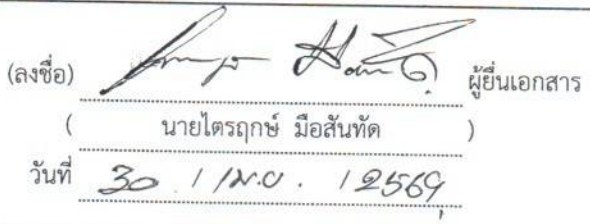 (ลงชื่อ) ผู้ยื่นเอกสาร
( นายไตรฤกษ์ มือสันทัด )
วันที่ 30 / เม.ย. / 2569